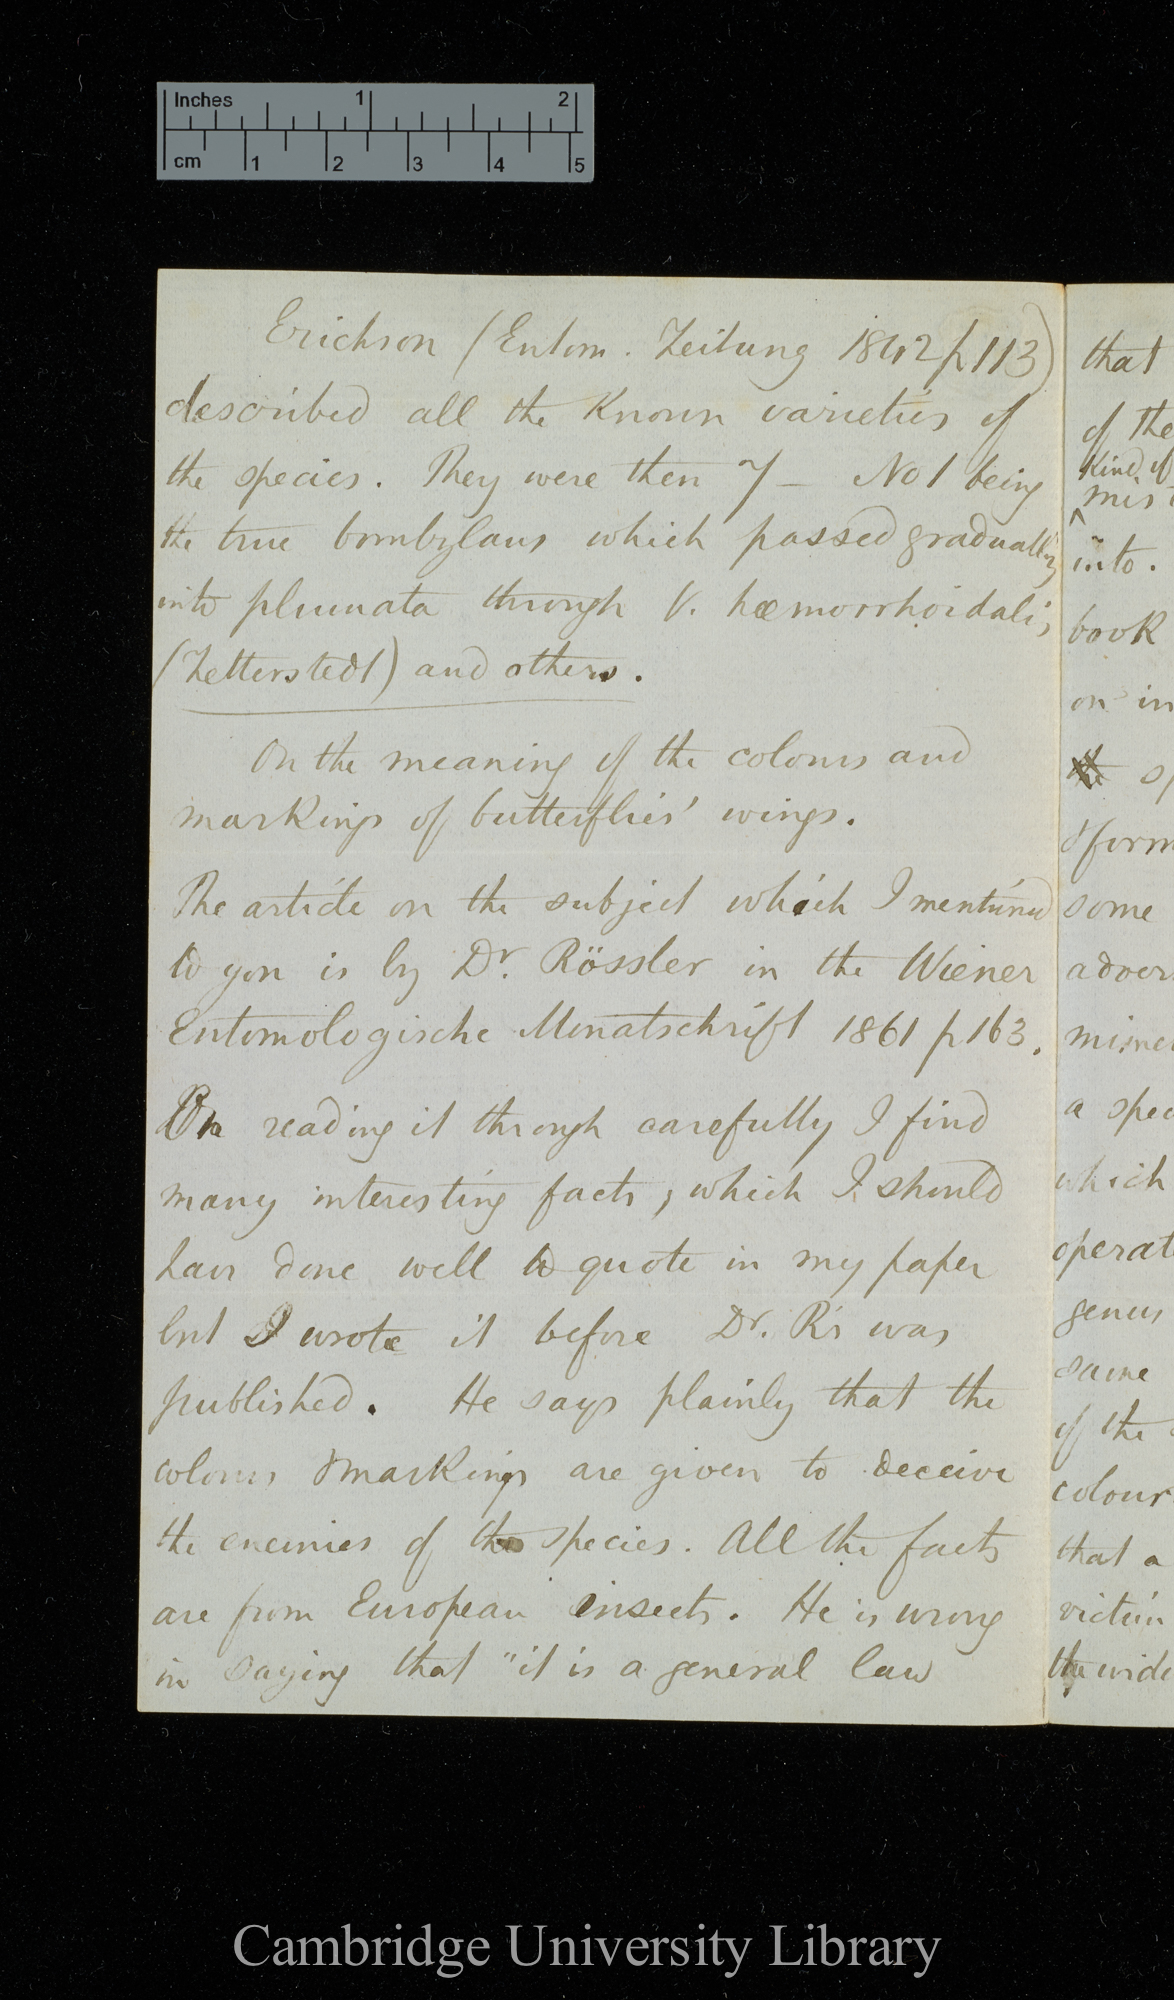 Inches 1 2
cm 1 2 3 4 5
Erichson (Entom. Zeitung 1842 p 113)
described all the Known varieties of
the species. They were then 7 — No 1 being
the true bombylans which passed gradually
into plumata through V. hæmorrhoidalis
(Zetterstedt) and others.
On the meaning of the colours and
markings of butterflies' wings.
The article on the subject which I mentioned
to you is by Dr. Rössler in the Wiener
Entomologische Monatschrift 1861 p 163.
On reading it through carefully I find
many interesting facts, which I should
have done well to quote in my paper
but I wrote it before Dr. R's was
published. He says plainly that the
colours & markings are given to deceive
the enemies of the species. All the facts
are from European insects. He is wrong
in saying that "it is a general law
that
of the
Kind of
mis
into.
book
on in
sp
& form
some
adver
mimet
a spec
which
operat
genus
same
of the
colour
that a
victim
the wide
Cambridge University Library